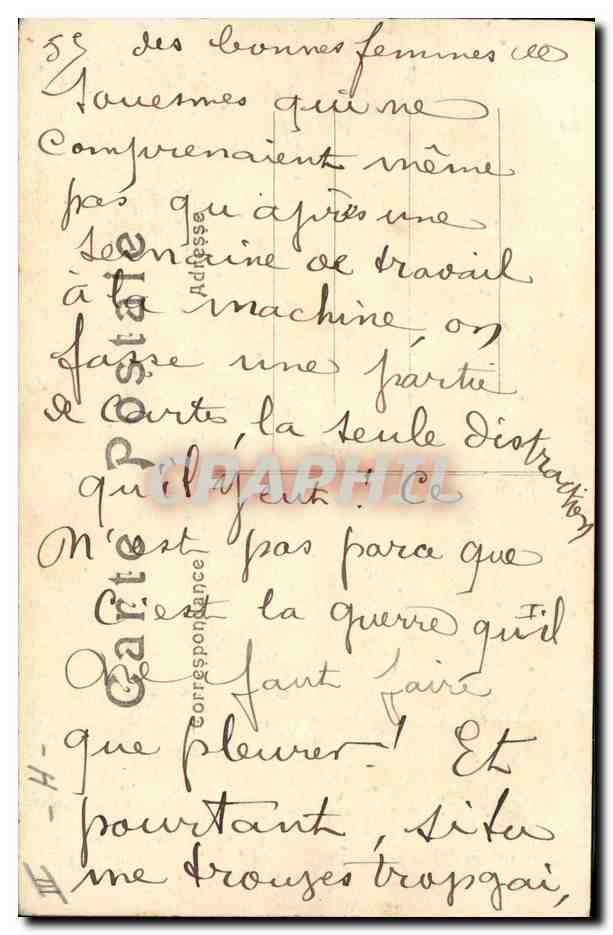 5) des bonnes femmes de
Souesmes qui ne
comprenaient même
pas qu'après une
semaine de travail
à la machine, on
fasse une partie
de cartes, la seule distraction
qu'il y ent! Ce
n'est pas parce que
c'est la guerre qu'il
ne faut faire
que pleurer! Et
pourtant, si tu
me trouves trop gai,
Carte Postale
Adresse
Correspondance
CPAPHIL
III -H-